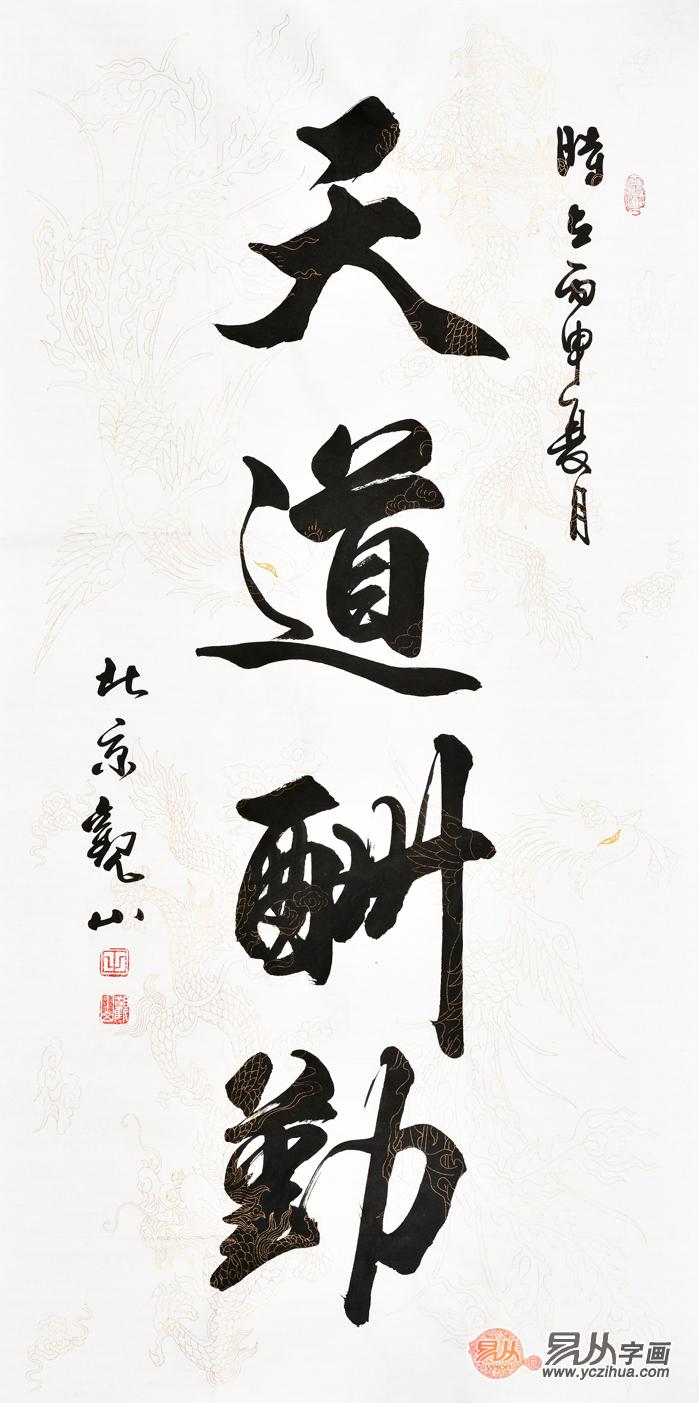 時在丙申夏月
天道酬勤
北京觀山
易从字画
yepn
www.yczihua.com